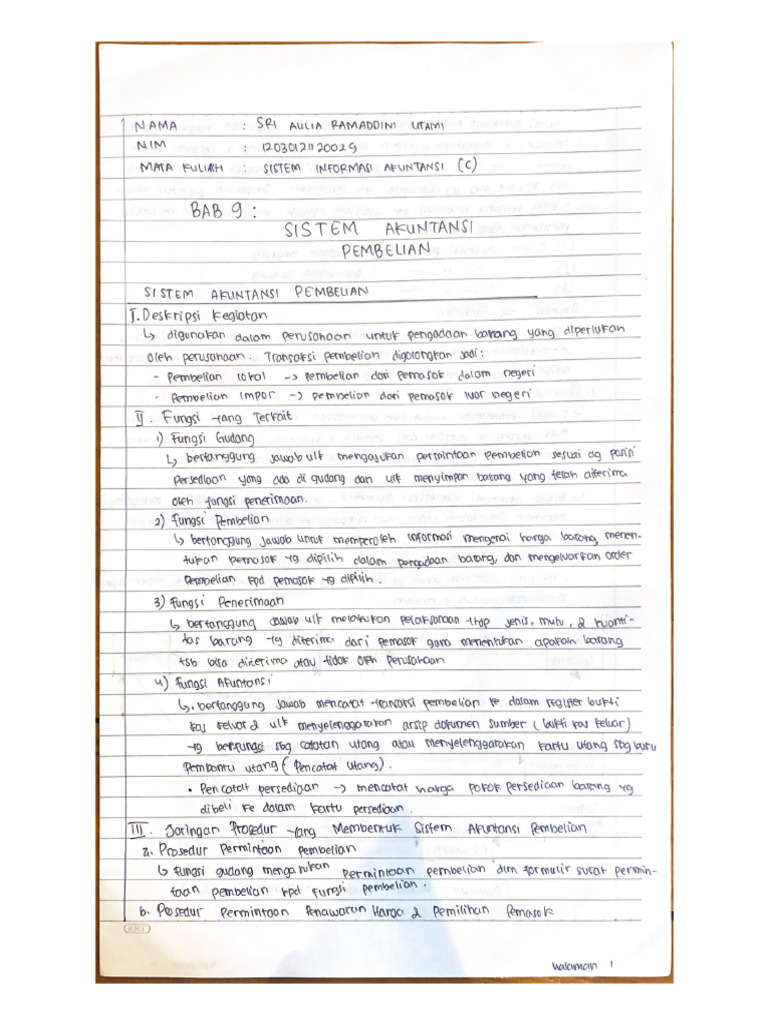 NAMA : SRI AULIA RAMADDINI UTAMI
NIM : 12030121120029
MATA KULIAH : SISTEM INFORMASI AKUNTANSI (C)
BAB 9 :
SISTEM AKUNTANSI
PEMBELIAN
SISTEM AKUNTANSI PEMBELIAN
I. Deskripsi Kegiatan
↳ digunakan dalam perusahaan untuk pengadaan barang yang diperlukan
oleh perusahaan. Transaksi pembelian digolongkan jadi :
- Pembelian lokal -> pembelian dari pemasok dalam negeri
- Pembelian Impor -> pembelian dari pemasok luar negeri
II. Fungsi yang Terkait
1) Fungsi Gudang
↳ bertanggung jawab utk mengajukan permintaan pembelian sesuai dg posisi
persediaan yang ada di gudang dan utk menyimpan barang yang telah diterima
oleh fungsi penerimaan.
2) Fungsi Pembelian
↳ bertanggung jawab untuk memperoleh informasi mengenai harga barang, menen-
tukan pemasok yg dipilih dalam pengadaan barang, dan mengeluarkan order
Pembelian kpd pemasok yg dipilih.
3) Fungsi Penerimaan
↳ bertanggung jawab utk melakukan pelaksanaan thdp jenis, mutu, & kuanti-
tas barang yg diterima dari pemasok guna menentukan apakah barang
tsb bisa diterima atau tidak oleh perusahaan
4) Fungsi Akuntansi
↳ • bertanggung jawab mencatat transaksi pembelian ke dalam register bukti
kas keluar & utk menyelenggarakan arsip dokumen sumber (bukti kas keluar)
yg berfungsi sbg catatan utang atau menyelenggarakan kartu utang sbg buku
Pembantu utang (Pencatat utang).
• Pencatat persediaan -> mencatat harga pokok persediaan barang yg
dibeli ke dalam kartu persediaan.
III. Jaringan Prosedur yang Membentuk Sistem Akuntansi Pembelian
a. Prosedur Permintaan pembelian
↳ fungsi gudang mengajukan permintaan pembelian dlm formulir surat permin-
taan pembelian kpd fungsi pembelian.
b. Prosedur Permintaan Penawaran Harga & Pemilihan Pemasok
halaman 1